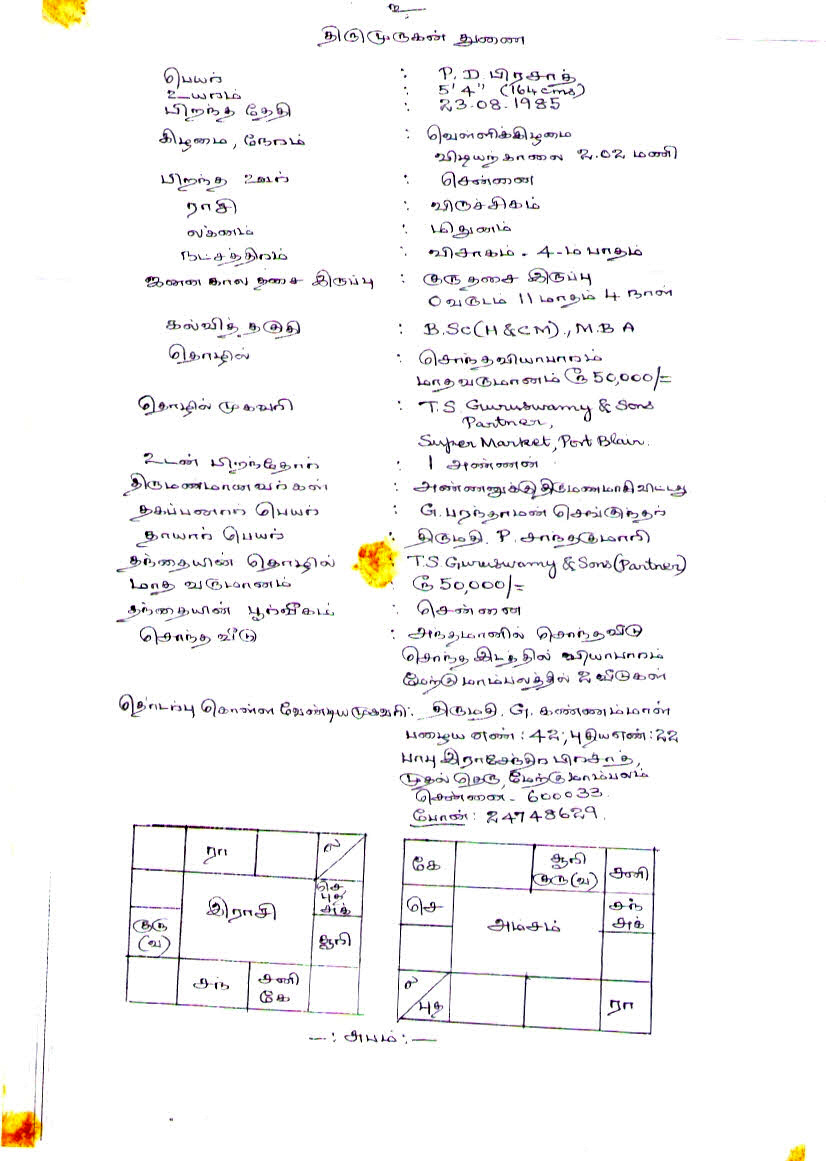 உ
திருமுருகன் துணை
பெயர் : P. D. பிரசாத்
உயரம் : 5' 4" (164 cms)
பிறந்த தேதி : 23.08.1985
கிழமை, நேரம் : வெள்ளிக்கிழமை
விடியற்காலை 2.02 மணி
பிறந்த ஊர் : சென்னை
ராசி : விருச்சிகம்
லக்னம் : மிதுனம்
நட்சத்திரம் : விசாகம் - 4-ம் பாதம்
ஜனன கால தசை இருப்பு : குரு தசை இருப்பு
0 வருடம் 11 மாதம் 4 நாள்
கல்வித் தகுதி : B.Sc (H & CM)., M.B A
தொழில் : சொந்த வியாபாரம்
மாத வருமானம் ரூ 50,000/=
தொழில் முகவரி : T.S. Guruswamy & Sons
Partner,
Super Market, Port Blair.
உடன் பிறந்தோர் : 1 அண்ணன்
திருமணமானவர்கள் : அண்ணனுக்கு திருமணமாகிவிட்டது
தகப்பனார் பெயர் : G. பரந்தாமன் செங்குந்தர்
தாயார் பெயர் : திருமதி. P. சாந்தகுமாரி
தந்தையின் தொழில் : T.S. Guruswamy & Sons (Partner)
மாத வருமானம் : ரூ 50,000/=
தந்தையின் பூர்வீகம் : சென்னை
சொந்த வீடு : அந்தமானில் சொந்த வீடு
சொந்த இடத்தில் வியாபாரம்
மேற்கு மாம்பலத்தில் 2 வீடுகள்
தொடர்பு கொள்ள வேண்டிய முகவரி : திருமதி. G. கண்ணம்மாள்
பழைய எண் : 42, புதிய எண் : 22
பாபு இராசேந்திர பிரசாத்,
முதல் தெரு, மேற்கு மாம்பலம்
சென்னை - 600033.
போன் : 24748629.
ரா ல
செ புத அக்
இராசி
குரு (வ)
சூரி
சந் சனி கே
கே சூரி குரு (வ) சனி
செ சந் அக்
அம்சம்
ல புத ரா
—: சுபம் :—